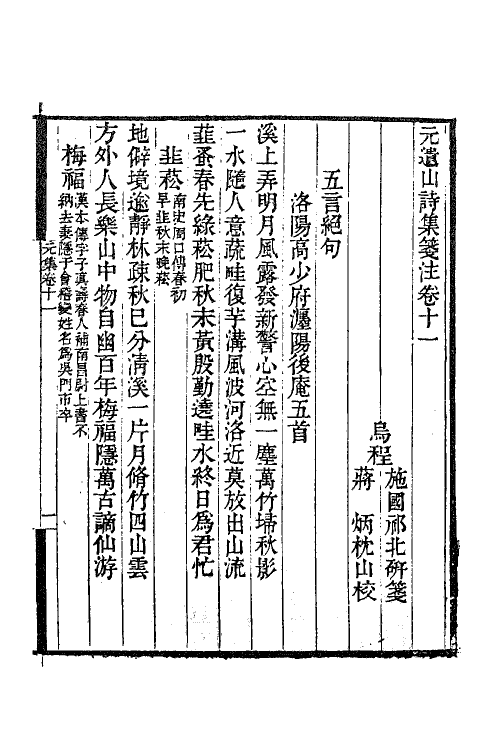 元遺山詩集箋注卷十一
烏程
施國祁北硏箋
蔣炳枕山校
五言絕句
洛陽高少府瀍陽後庵五首
溪上弄明月風露發新警心空無一塵萬竹埽秋影
一水隨人意蔬畦復芋溝風波河洛近莫放出山流
韮蚤春先綠菘肥秋未黃殷勤遶畦水終日爲君忙
韭菘南史周口傳春初
早韭秋末晚菘
地僻境逾靜林疎秋已分清溪一片月脩竹四山雲
方外人長樂山中物自幽百年梅福隱萬古謫仙游
梅福漢本傳字子眞壽春人補南昌尉上書不
納去妻隱于會稽變姓名爲吳門市卒
元集卷十一
一